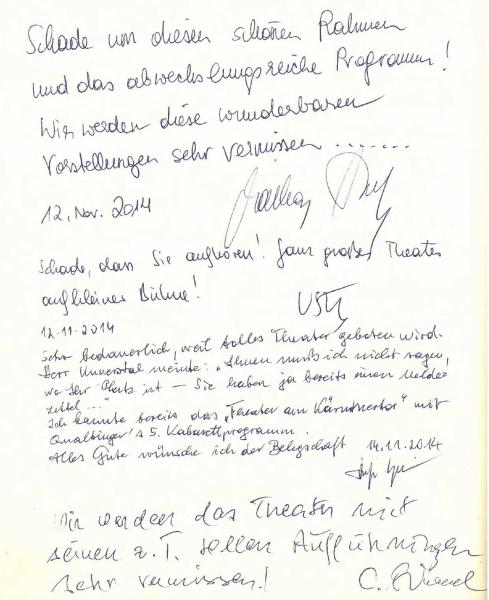 Schade um diesen schönen Rahmen
und das abwechslungsreiche Programm!
Wir werden diese wunderbaren
Vorstellungen sehr vermissen .......
12. Nov. 2014
Schade, dass Sie aufhören! Ganz großes Theater
auf kleiner Bühne!
12.11.2014
Sehr bedauerlich, weil tolles Theater geboten wird.
Herr meinte: "Ihnen muß ich nicht sagen,
wo Ihr Platz ist – Sie haben ja bereits einen Melde-
zettel..."
Ich kannte bereits das "Theater am Kärntnertor" mit
Qualtinger's 5. Kabarettprogramm.
Alles Gute wünsche ich der Belegschaft 14.11.2014
Wir werden das Theater mit
seinen z.T. tollen Aufführungen
sehr vermissen! C.